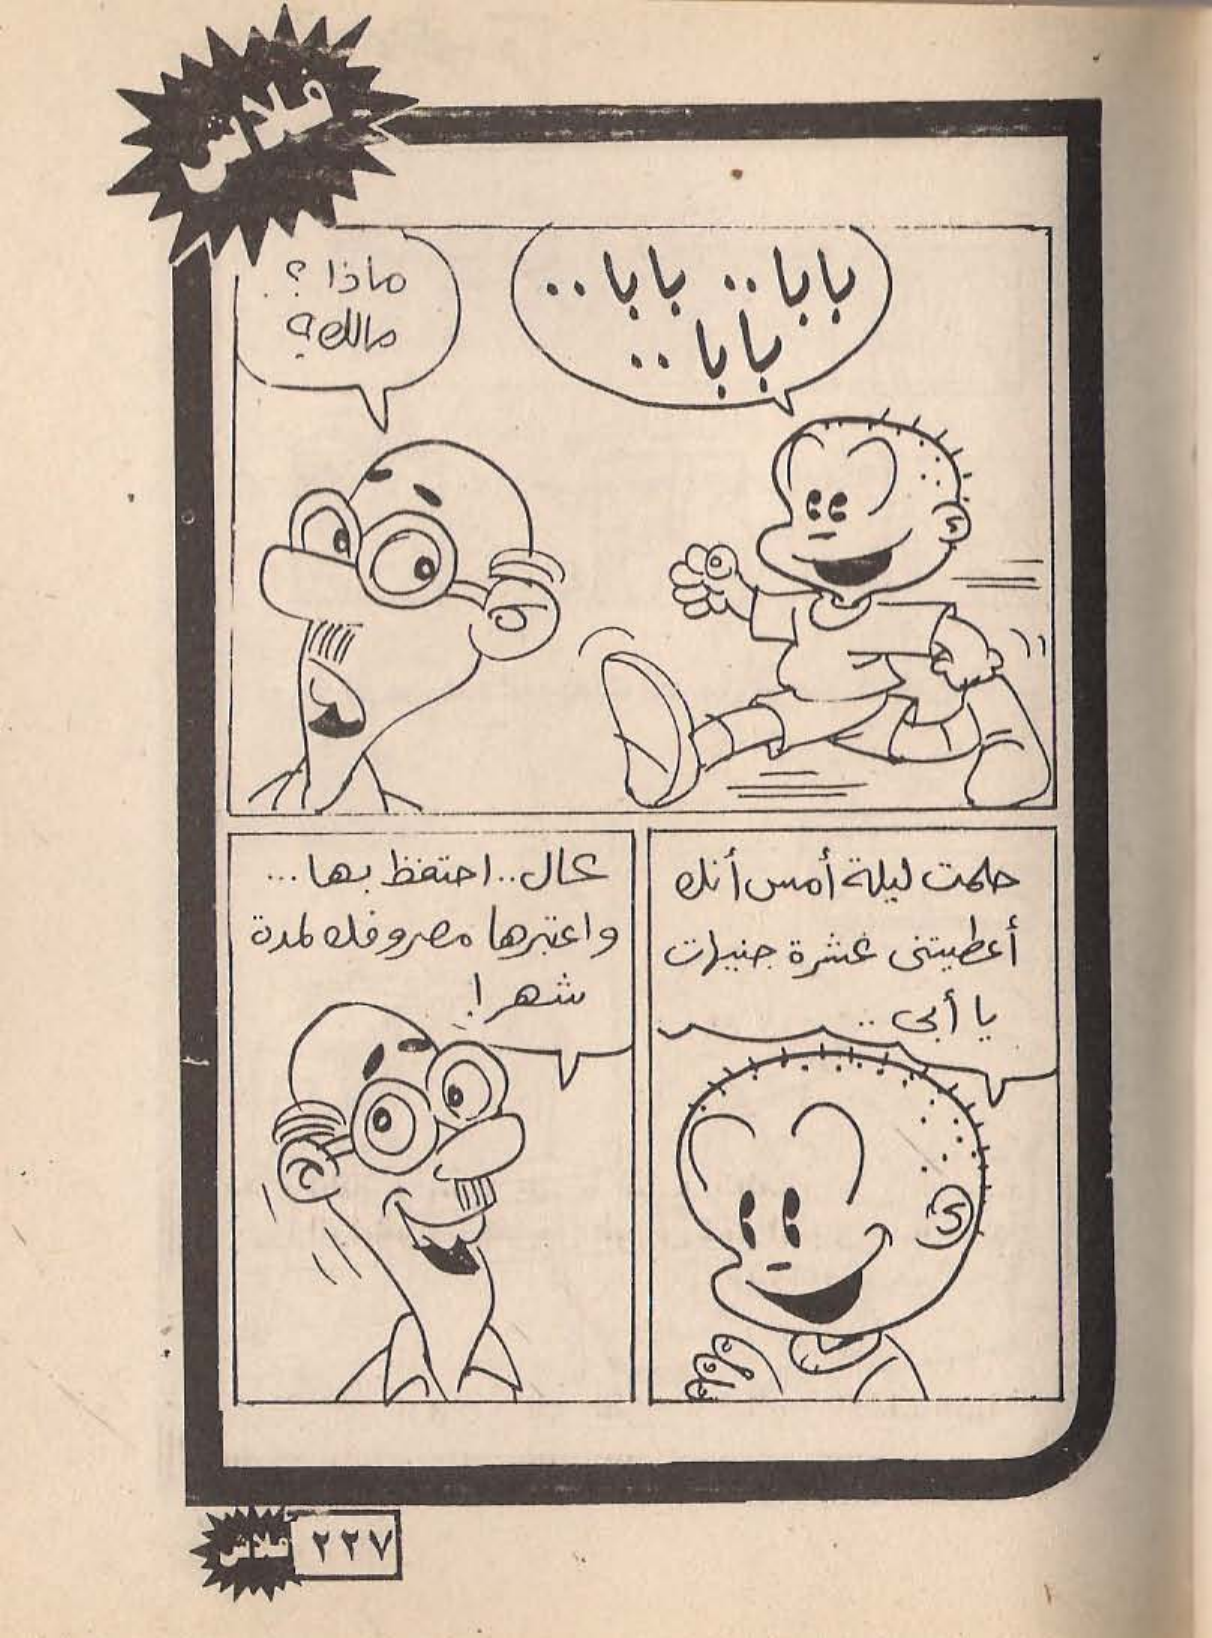 فلاش
بابا.. بابا..
بابا..
ماذا؟
مالك؟
حلمت ليلة أمس أنك
أعطيتنى عشرة جنيهات
يا أبى..
عال.. احتفظ بها...
واعتبرها مصروفك لمدة
شهر!
٢٢٧
فلاش